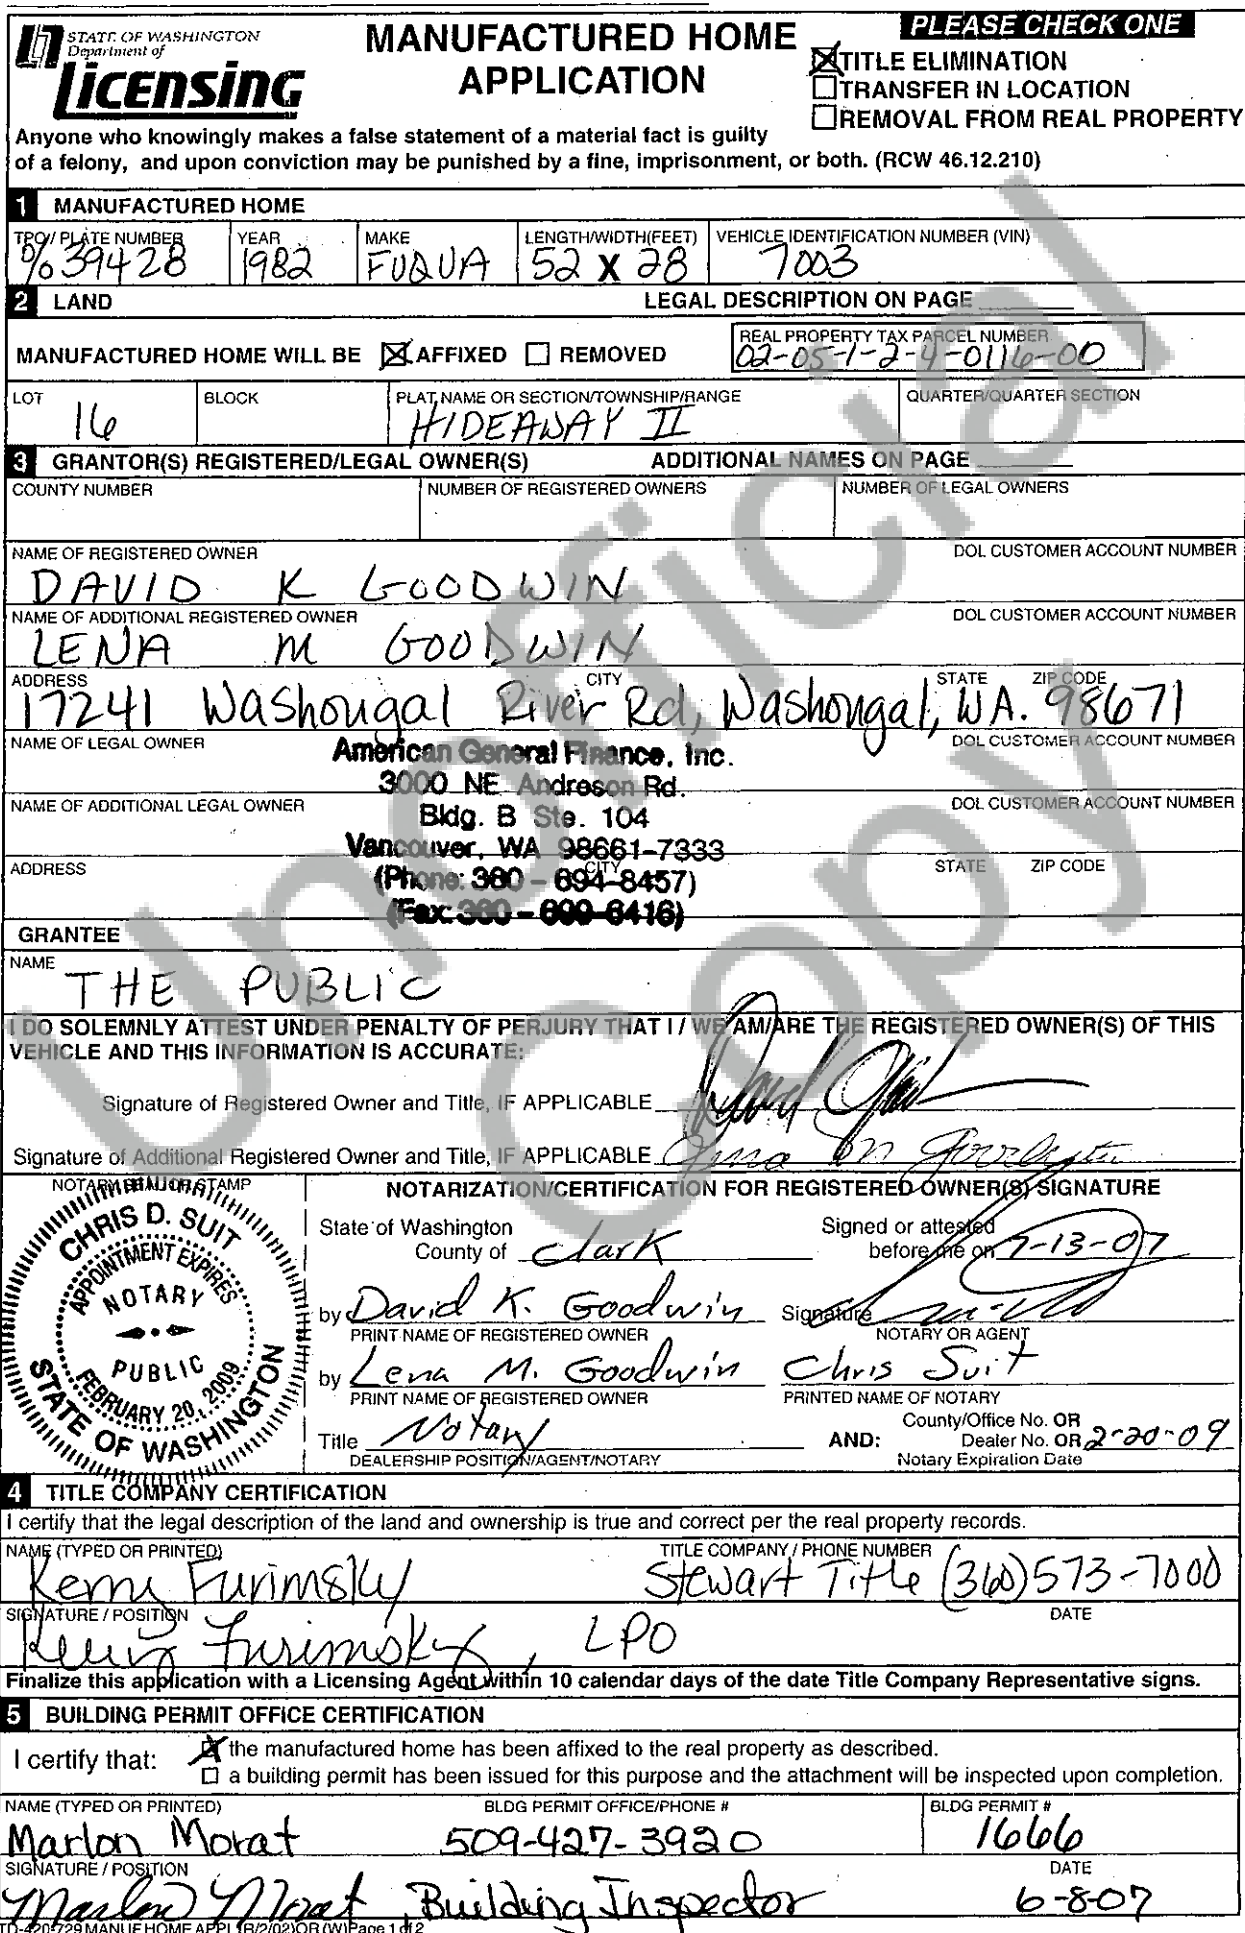 STATE OF WASHINGTON
Department of
Licensing
MANUFACTURED HOME
APPLICATION
PLEASE CHECK ONE
TITLE ELIMINATION
TRANSFER IN LOCATION
REMOVAL FROM REAL PROPERTY
Anyone who knowingly makes a false statement of a material fact is guilty
of a felony, and upon conviction may be punished by a fine, imprisonment, or both. (RCW 46.12.210)
1 MANUFACTURED HOME
TPO/ PLATE NUMBER YEAR MAKE LENGTH/WIDTH(FEET) VEHICLE IDENTIFICATION NUMBER (VIN)
%39428 1982 FUQUA 52 X 28 7003
2 LAND LEGAL DESCRIPTION ON PAGE
MANUFACTURED HOME WILL BE AFFIXED REMOVED
REAL PROPERTY TAX PARCEL NUMBER
02-05-1-2-4-0116-00
LOT BLOCK PLAT NAME OR SECTION/TOWNSHIP/RANGE QUARTER/QUARTER SECTION
16 HIDEAWAY II
3 GRANTOR(S) REGISTERED/LEGAL OWNER(S) ADDITIONAL NAMES ON PAGE
COUNTY NUMBER NUMBER OF REGISTERED OWNERS NUMBER OF LEGAL OWNERS
NAME OF REGISTERED OWNER DOL CUSTOMER ACCOUNT NUMBER
DAVID K GOODWIN
NAME OF ADDITIONAL REGISTERED OWNER DOL CUSTOMER ACCOUNT NUMBER
LENA M GOODWIN
ADDRESS CITY STATE ZIP CODE
17241 Washougal River Rd, Washougal, WA. 98671
NAME OF LEGAL OWNER DOL CUSTOMER ACCOUNT NUMBER
American General Finance, Inc.
3000 NE Andreson Rd.
NAME OF ADDITIONAL LEGAL OWNER DOL CUSTOMER ACCOUNT NUMBER
Bldg. B Ste. 104
Vancouver, WA 98661-7333
ADDRESS CITY STATE ZIP CODE
(Phone: 360 - 694-8457)
(Fax: 360 - 699-6416)
GRANTEE
NAME
THE PUBLIC
I DO SOLEMNLY ATTEST UNDER PENALTY OF PERJURY THAT I / WE AM/ARE THE REGISTERED OWNER(S) OF THIS
VEHICLE AND THIS INFORMATION IS ACCURATE:
Signature of Registered Owner and Title, IF APPLICABLE
Signature of Additional Registered Owner and Title, IF APPLICABLE
NOTARY SEAL OR STAMP
CHRIS D. SUIT
APPOINTMENT EXPIRES
NOTARY
PUBLIC
FEBRUARY 20, 2009
STATE OF WASHINGTON
NOTARIZATION/CERTIFICATION FOR REGISTERED OWNER(S) SIGNATURE
State of Washington Signed or attested
County of Clark before me on 7-13-07
by David K. Goodwin Signature
PRINT NAME OF REGISTERED OWNER NOTARY OR AGENT
by Lena M. Goodwin Chris Suit
PRINT NAME OF REGISTERED OWNER PRINTED NAME OF NOTARY
Title Notary AND: County/Office No. OR
Dealer No. OR 2-20-09
DEALERSHIP POSITION/AGENT/NOTARY Notary Expiration Date
4 TITLE COMPANY CERTIFICATION
I certify that the legal description of the land and ownership is true and correct per the real property records.
NAME (TYPED OR PRINTED) TITLE COMPANY / PHONE NUMBER
Kerry Furimsky Stewart Title (360) 573-7000
SIGNATURE / POSITION DATE
Kerry Furimsky, LPO
Finalize this application with a Licensing Agent within 10 calendar days of the date Title Company Representative signs.
5 BUILDING PERMIT OFFICE CERTIFICATION
I certify that: the manufactured home has been affixed to the real property as described.
a building permit has been issued for this purpose and the attachment will be inspected upon completion.
NAME (TYPED OR PRINTED) BLDG PERMIT OFFICE/PHONE # BLDG PERMIT #
Marlon Morat 509-427-3920 1666
SIGNATURE / POSITION DATE
Marlon Morat, Building Inspector 6-8-07
TD-420-729 MANUF HOME APPL (R/2/02)OR (W)Page 1 of 2
Unofficial
Copy